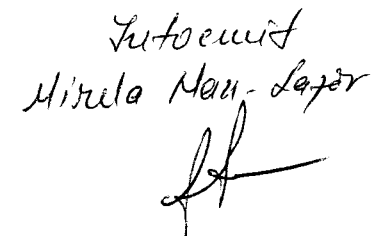 Intocmit
Mirela Man-Lazăr